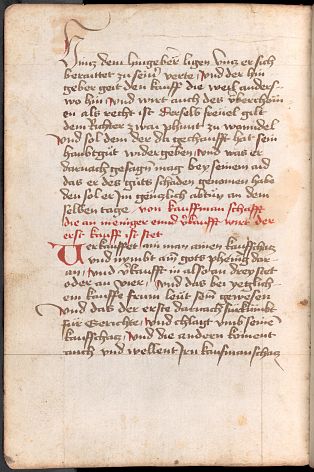 Hintz dem hingeber ligen Vntz er sich
beraittet zu seiner verte Vnd der hin
geber geit den kauff die weil anders
wo hin Vnd wirt auch des vberchom
en als recht ist Derselb freuel gilt
dem Richter zwai phunt zu wanndel
Vnd sol dem der da gechaufft hat sein
haubtgůt widergeben Vnd was er
darnach gesagn mag bey seinem aid
das er des gůts schaden genomen habe
den sol er Im gentzlich abtůn an dem
selben tage von kauffmanschafft
die an meniger ennd v̈kaufft wirt der
erst kauff ist stet
Verkauffet ain man ainen kauffschatz
und nymbt ain gots phening dar
an Vnd v̈kaufft in also an drey stet
oder an vier Vnd das bey yetzlich
em kauffe frum leůt sein gewesen
Vnd das der erste darnach fürkumbt
für Gerichte Vnd chlagt vmb seinen
kauffschatz Vnd die andern koment
auch vnd wellent Irn kaufmanschatz